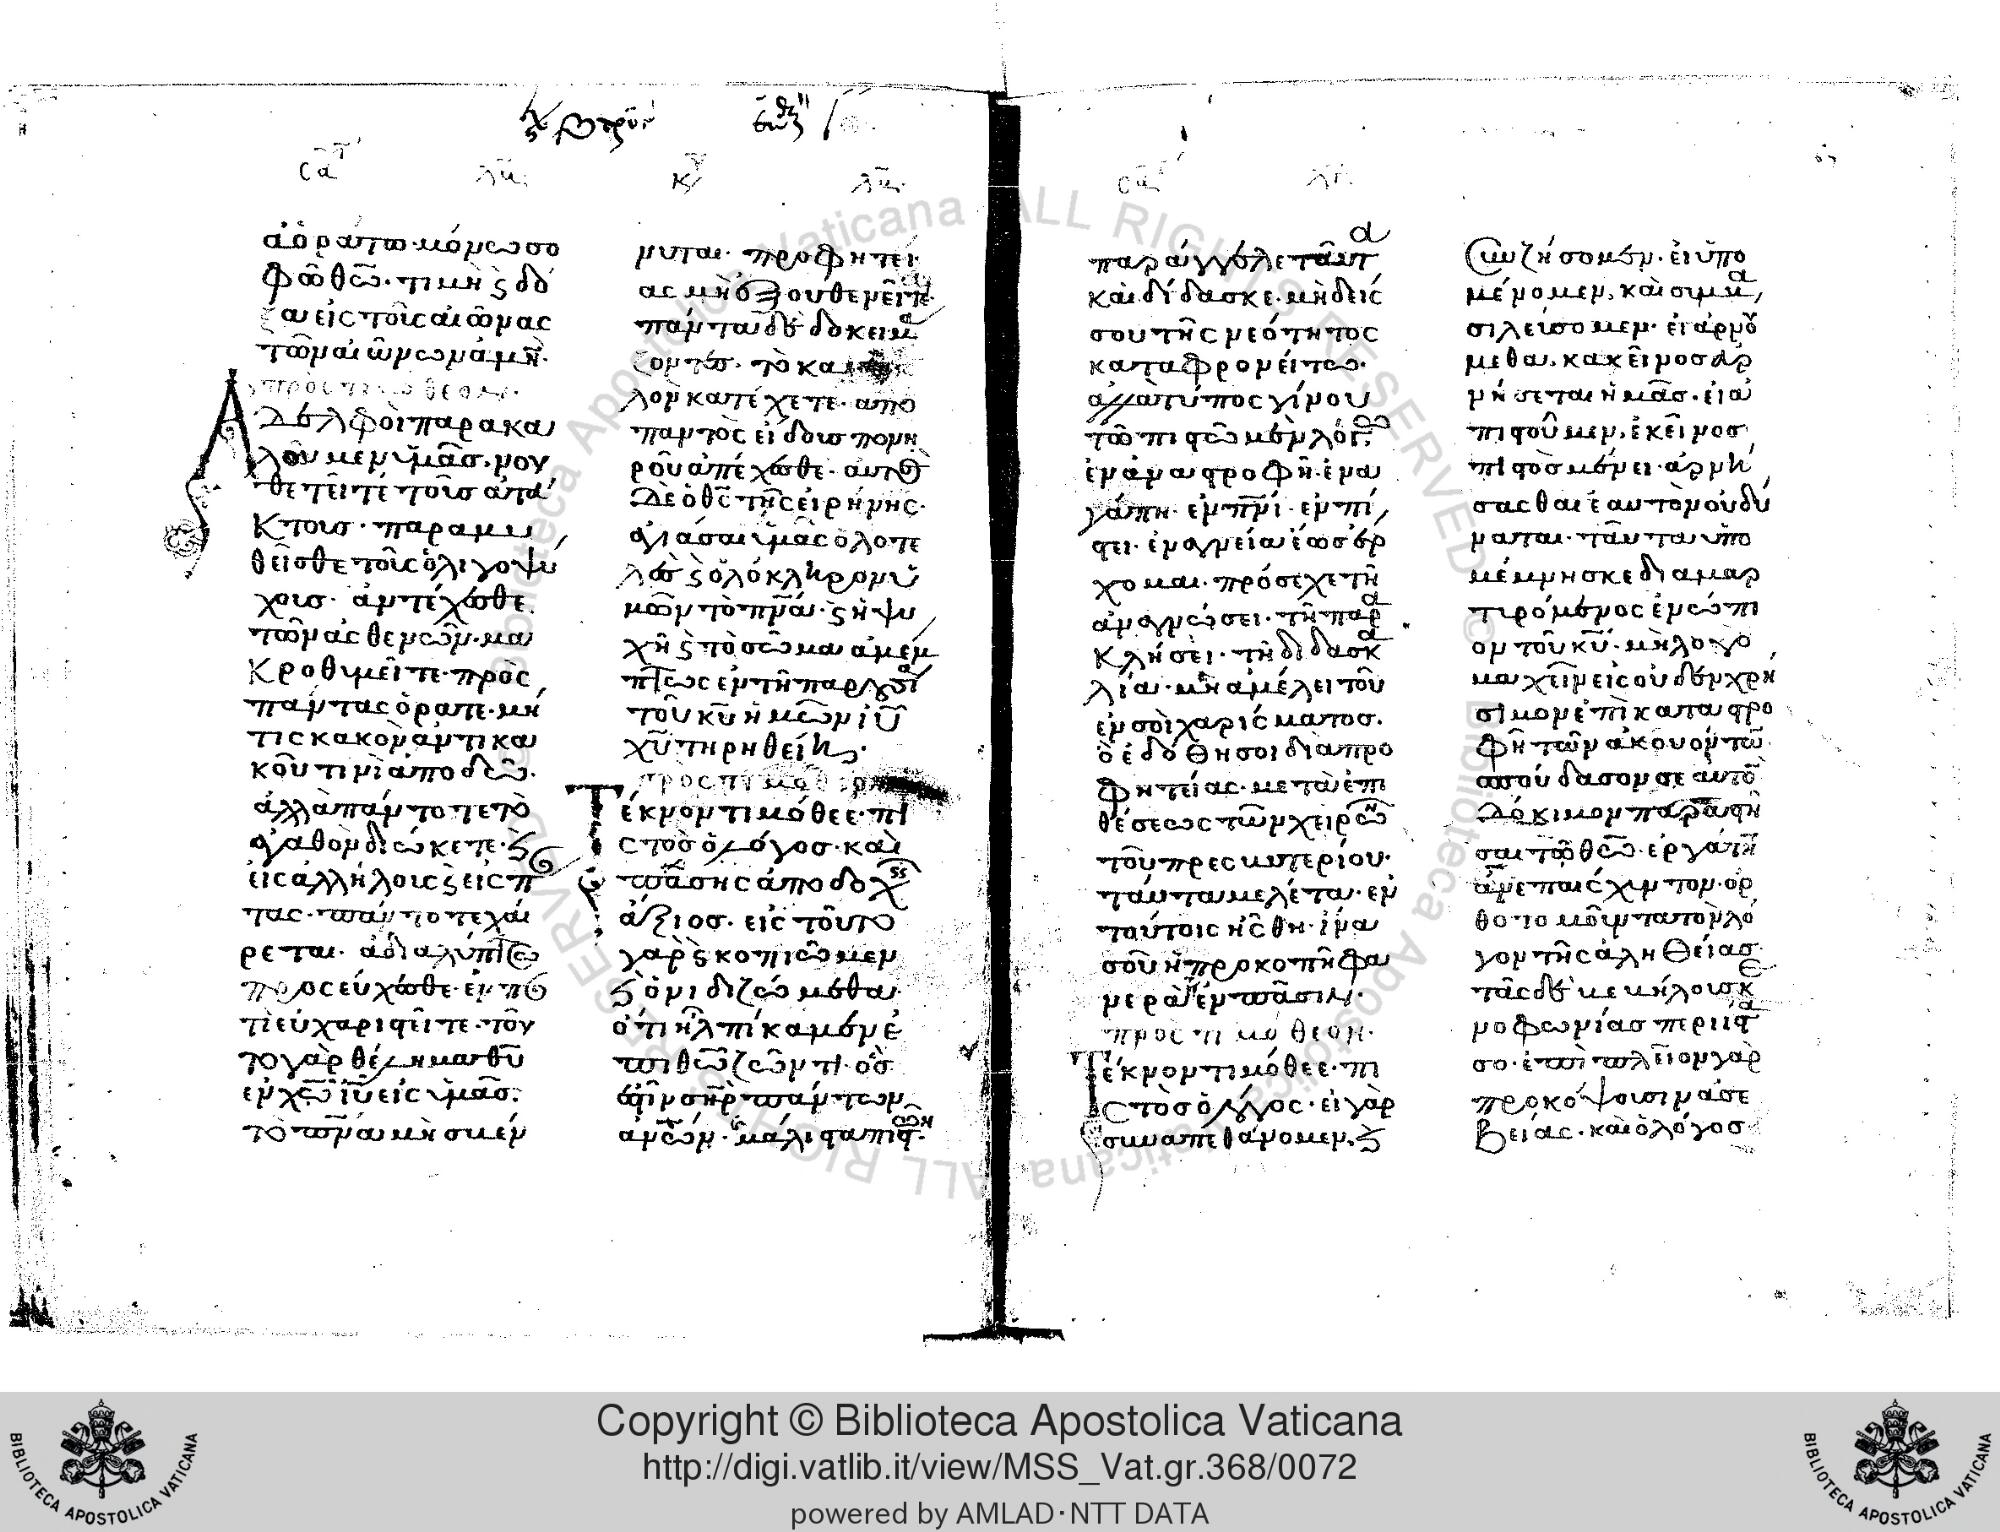 ἀοράτω· μόνω σο
φῶ θεῶ· τιμὴ ϗ δό
ξα εἰς τοῖς αἰῶνας
τῶν αἰώνων ἀμήν·
Ἀδελφοὶ παρακα
λοῦμεν ὑμᾶσ· νου
θετεῖτέ τοῖσ ἀτά
κτοισ· παραμυ
θεῖσθε τοῖς ὀλιγοψύ
χοισ· ἀντέχεσθε
τῶν ἀσθενῶν· μα
κροθυμεῖτε· πρὸς
πάντας ὁρατε· μή
τις κακὸν ἀντι κα
κοῦ τινὶ ἀποδῶ·
ἀλλὰ πάντοτε τὸ
ἀγαθὸν διώκετε· ϗ
εἰς ἀλλήλοις ϗ εἰς π
τας· πάντοτε χαί
ρεται· ἀδιαλύπτω
προσεύχεσθε· ἐν π
τὶ εὐχαριστεῖτε· τοῦ
το γὰρ θέλημα θῦ
ἐν χῶ ἰῦ εἰς ὑμᾶσ·
τὸ πνᾶ μὴ σβέν
νυται· προφητεί
ας μὴ ἐξουθενεῖτε·
πάντα δὲ δοκειμα
ζοντες· τὸ κα
λὸν κατέχετε· απο
παντὸς εἴδουσ πονη
ροῦ ἀπέχεσθε· αυτο
δὲ ὁ θς τῆς εἰρήνης·
ἁγιάσαι ὑμᾶς ὁλοτε
λεσ ϗ ὁλόκληρον ὑ
μῶν τὸ πνᾶ· ϗ ἡ ψυ
χὴ ϗ τὸ σῶμα ἀμέμ
πτως ἐν τῆ παρουσία
τοῦ κῦ ἡμῶν ἰῦ
χῦ τηρηθείη·
πρὸς τιμόθεον
Τέκνον τιμόθεε· πι
στὸσ ὁ λόγοσ· καὶ
πάσης ἀποδοχῆς
ἄξιοσ· εἰς τοῦτο
γαρ ϗ κοπιῶμεν
ϗ ὀνιδιζώμεθα·
ὅτι ἠλπίκαμεν ἐ
πι θῶ ζῶντι· ὅσ
ἐστὶν σηρ πάντων
ἀνῶν· μάλιστα πιστῶν·
παράγγελε ταῦτα
καὶ δίδασκε· μηδείς
σου τῆς νεότητος
καταφρονείτω·
ἀλλὰ τύπος γίνου
τῶ πιστῶ μὲν λόγω
ἐν ἀναστροφῆ· ἐν ἀ
γάπη· ἐν πνι· ἐν πί
στει· ἐν ἁγνεία ἕως ἔρ
χομαι· πρόσεχε τῆ
ἀναγνώσει· τῆ παρα
κλήσει· τῆ διδασκα
λία· μὴ ἀμέλει τοῦ
ἐν σοὶ χαρίσματοσ·
ὃ ἐδόθη σοι διὰ προ
φητείας· μετὰ ἐπι
θέσεως τῶν χειρῶν
τοῦ πρεσβυτερίου·
ταύτα μελέτα· ἐν
ταύτοις ἦσθη· ἵνα
σοῦ ἡ προκοπὴ φα
νερὰ ἦ ἐν πᾶσιν·
πρὸς τιμόθεον·
Τέκνον τιμόθεε· πι
στὸσ ὁ λόγος· εἰ γὰρ
συναπεθάνομεν, ϗ
συνζήσομεν· εἰ ὑπο
μένομεν, καὶ συμβα
σιλεύσομεν· εἰ ἀρνού
μεθα, κακεῖνοσ ἀρ
νήσεται ἡμᾶσ· εἰ ἀ
πιστοῦμεν, ἐκεῖνοσ
πιστὸσ μένει· ἀρνή
σασθαι ἑαυτὸν οὐ δύ
ναται· ταῦτα ὑπο
μέμνησκε διαμαρ
τιρόμενος ἐνώπι
ον τοῦ κῦ· μὴ λογο
μαχεῖν εἰς οὐδὲν χρή
σιμον ἐπὶ καταστρο
φῆ τῶν ἀκουόντων
σπούδασον σε αυτὸ
δόκιμον παραστῆ
σαι τῶ θεῶ· ἐργάτην
ἀνεπαισχυντον· ὀρ
θοτομοῦντα τὸν λό
γον τῆς ἀληθείασ
τὰς δὲ βεβήλουσ κε
νοφωνίασ περιίστα
σο· ἐπὶ πλεῖον γὰρ
προκόψουσιν ἀσε
βείας· καὶ ὁ λόγοσ
Copyright © Biblioteca Apostolica Vaticana
http://digi.vatlib.it/view/MSS_Vat.gr.368/0072
powered by AMLAD·NTT DATA